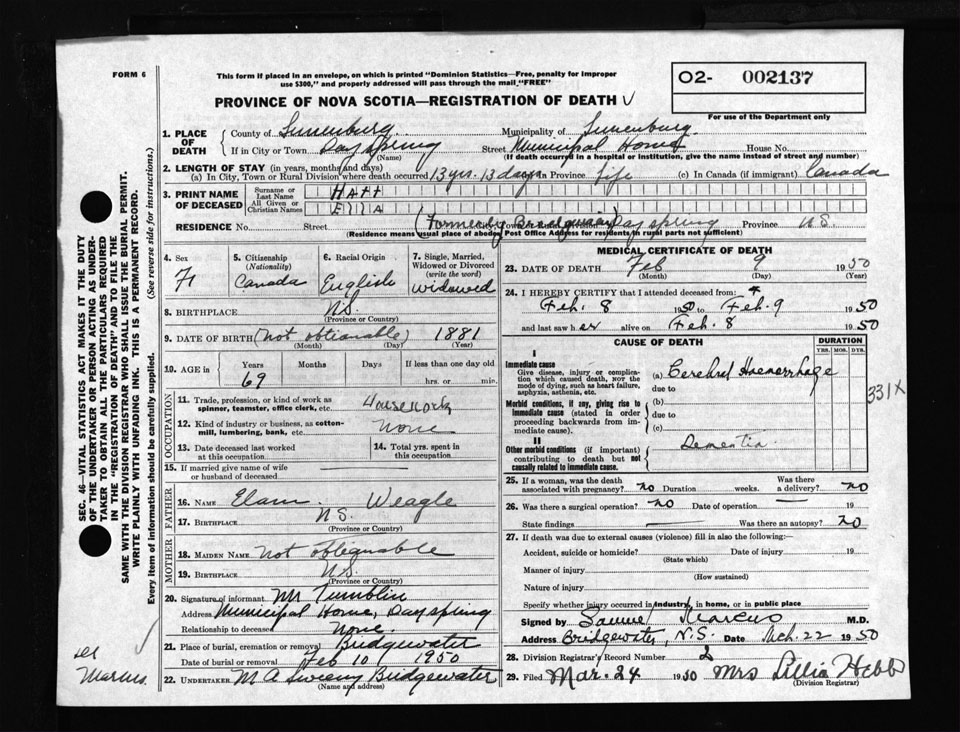 FORM 6
This form if placed in an envelope, on which is printed "Dominion Statistics—Free, penalty for improper
use $300," and properly addressed will pass through the mail "FREE"
02- 002137
For use of the Department only
PROVINCE OF NOVA SCOTIA—REGISTRATION OF DEATH
1. PLACE OF DEATH
County of Lunenburg Municipality of Lunenburg
If in City or Town Dayspring Street Municipal Home House No.
(Name) (If death occurred in a hospital or institution, give the name instead of street and number)
2. LENGTH OF STAY (in years, months and days)
(a) In City, Town or Rural Division where death occurred 13 yrs. 13 days In Province life (c) In Canada (if immigrant) Canada
3. PRINT NAME OF DECEASED
Surname or Last Name HATT
All Given or Christian Names EllA
RESIDENCE No. Street (Formerly Bridgewater) Dayspring Province N.S.
(Residence means usual place of abode. Post Office Address for residents in rural parts not sufficient)
4. Sex F
5. Citizenship (Nationality) Canada
6. Racial Origin English
7. Single, Married, Widowed or Divorced (write the word) widowed
8. BIRTHPLACE N.S.
(Province or Country)
9. DATE OF BIRTH (not obtianable) 1881
(Month) (Day) (Year)
10. AGE in Years Months Days If less than one day old
69 hrs. or min.
OCCUPATION
11. Trade, profession, or kind of work as spinner, teamster, office clerk, etc. Housework
12. Kind of industry or business, as cotton-mill, lumbering, bank, etc. None
13. Date deceased last worked at this occupation
14. Total yrs. spent in this occupation
15. If married give name of wife or husband of deceased
FATHER
16. NAME Elam Weagle
17. BIRTHPLACE N.S.
(Province or Country)
MOTHER
18. MAIDEN NAME Not obtianable
19. BIRTHPLACE N.S.
(Province or Country)
20. Signature of informant Mr Tumblin
Address Municipal Home, Dayspring
Relationship to deceased None.
21. Place of burial, cremation or removal Bridgewater
Date of burial or removal Feb 10 1950
22. UNDERTAKER M A Sweeny Bridgewater
(Name and address)
MEDICAL CERTIFICATE OF DEATH
23. DATE OF DEATH Feb 9 1950
(Month) (Day) (Year)
24. I HEREBY CERTIFY that I attended deceased from:
Feb. 8 1950 to Feb. 9 1950
and last saw her alive on Feb. 8 1950
CAUSE OF DEATH DURATION
YRS. MOS. DYS.
I
Immediate cause
Give disease, injury or complication which caused death, NOT the mode of dying, such as heart failure, asphyxia, asthenia, etc.
(a) Cerebral Haemorrhage
331X
due to
Morbid conditions, if any, giving rise to immediate cause (stated in order proceeding backwards from immediate cause).
(b)
due to
(c)
II
Other morbid conditions (if important) contributing to death but not causally related to immediate cause.
Dementia
25. If a woman, was the death associated with pregnancy? no Duration weeks. Was there a delivery? no
26. Was there a surgical operation? no Date of operation 19
State findings Was there an autopsy? no
27. If death was due to external causes (violence) fill in also the following:—
Accident, suicide or homicide? Date of injury 19
(State which)
Manner of injury
(How sustained)
Nature of injury
Specify whether injury occurred in industry, in home, or in public place
Signed by Samuel Marcus M.D.
Address Bridgewater, N.S. Date Mch. 22 1950
28. Division Registrar's Record Number 2
29. Filed Mar. 24 1950 Mrs Lillia Hebb
(Division Registrar)
SEC. 46—VITAL STATISTICS ACT MAKES IT THE DUTY
OF THE UNDERTAKER OR PERSON ACTING AS UNDER-
TAKER TO OBTAIN ALL THE PARTICULARS REQUIRED
IN THE "REGISTRATION OF DEATH" AND TO FILE THE
SAME WITH THE DIVISION REGISTRAR WHO SHALL ISSUE THE BURIAL PERMIT.
WRITE PLAINLY WITH UNFADING INK. THIS IS A PERMANENT RECORD.
Every item of information should be carefully supplied. (See reverse side for instructions.)
Marcus.